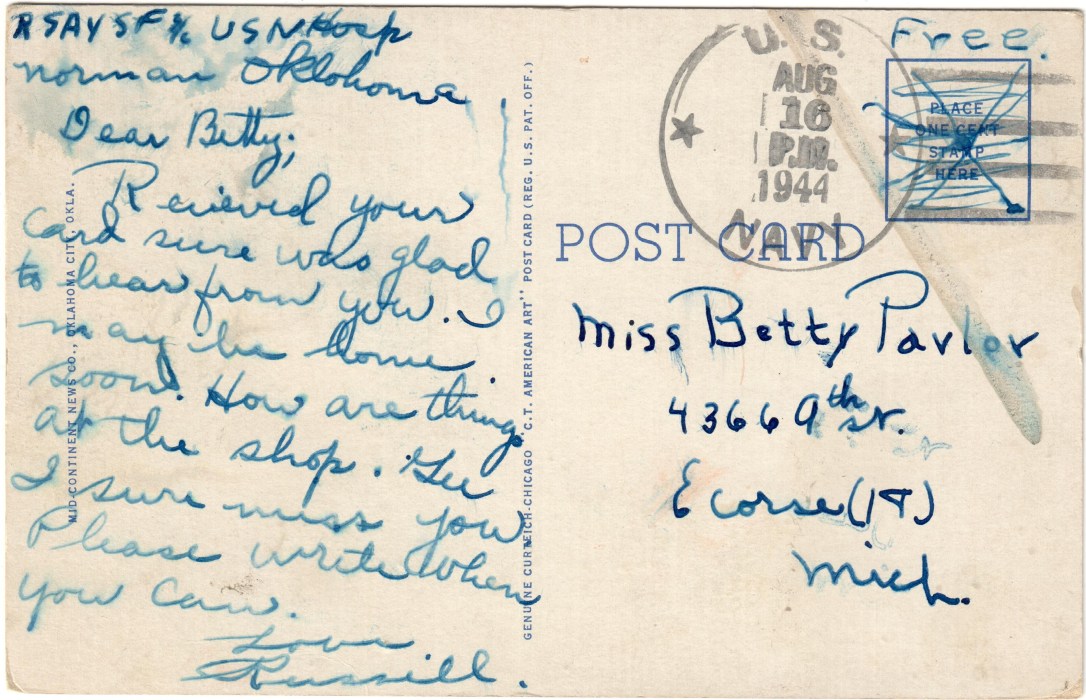 R SAY SF % USN Hosp
Norman Oklohoma
Dear Betty;
Recieved your
card sure was glad
to hear from you. I
may be home
soon. How are things
at the shop. Gee
I sure miss you
Please write when
you can.
Love
Russill.
MID-CONTINENT NEWS CO., OKLAHOMA CITY, OKLA.
GENUINE CURTEICH-CHICAGO "C.T. AMERICAN ART" POST CARD (REG. U.S. PAT. OFF.)
U.S.
AUG
16
P.M.
1944
NAVY
Free.
PLACE
ONE CENT
STAMP
HERE
POST CARD
Miss Betty Pavlor
4366 9th St.
Ecorse (18)
Mich.